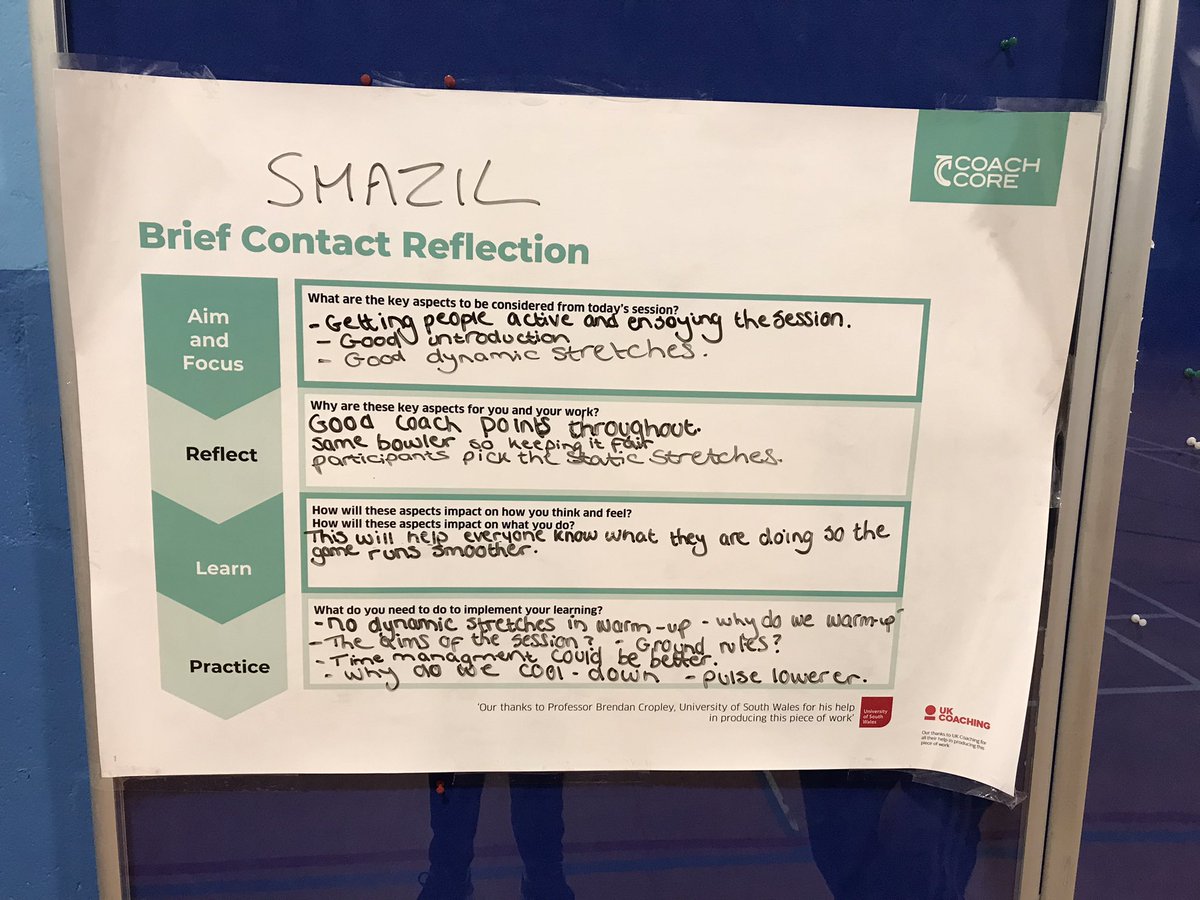 SMAZIL
COACH
CORE
Brief Contact Reflection
Aim
and
Focus
What are the key aspects to be considered from today's session?
- Getting people active and enjoying the session.
- Good introduction
- Good dynamic stretches.
Reflect
Why are these key aspects for you and your work?
Good coach points throughout.
same bowler so keeping it fair
participants pick the static stretches.
Learn
How will these aspects impact on how you think and feel?
How will these aspects impact on what you do?
This will help everyone know what they are doing so the
game runs smoother.
Practice
What do you need to do to implement your learning?
- no dynamic stretches in warm-up - why do we warm-up
- The aims of the session? - Ground rules?
- Time managment could be better.
- why do we cool-down - pulse lowerer.
'Our thanks to Professor Brendan Cropley, University of South Wales for his help
in producing this piece of work'
University
of South
Wales
UK
COACHING
Our thanks to UK Coaching for
all their help in producing this
piece of work
1